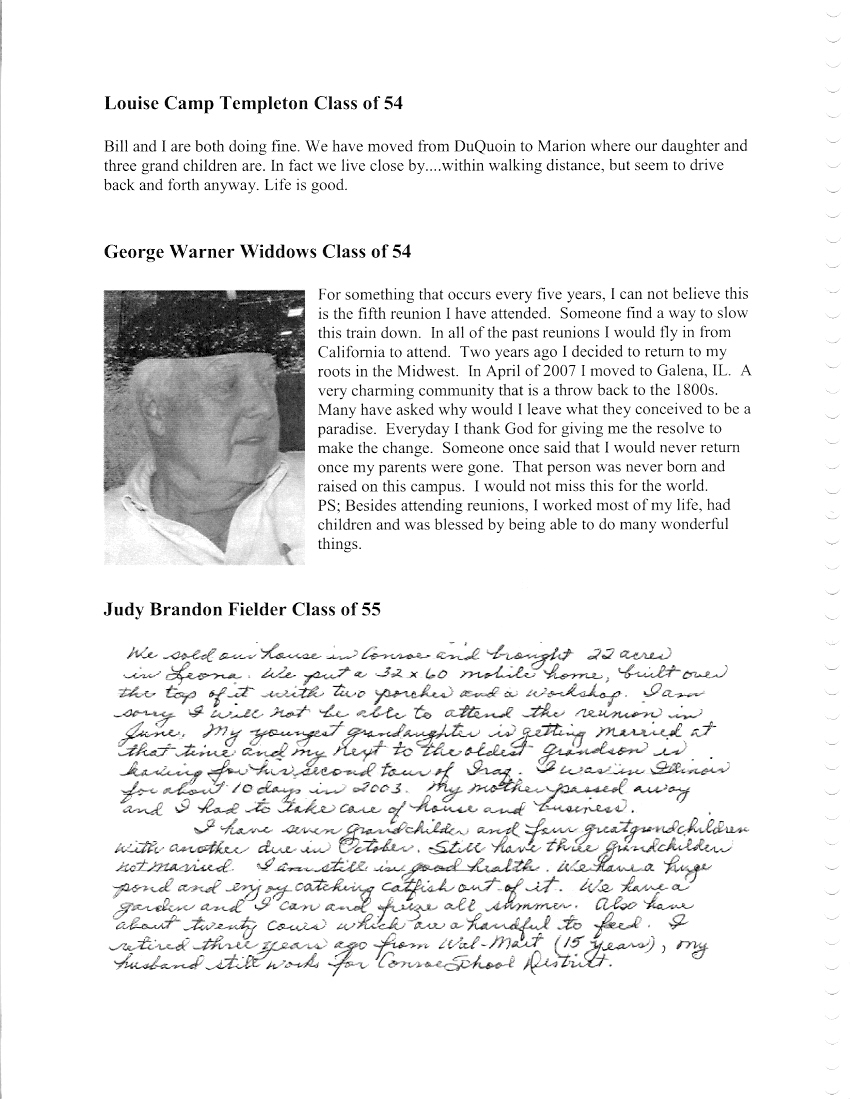 Louise Camp Templeton Class of 54
Bill and I are both doing fine. We have moved from DuQuoin to Marion where our daughter and
three grand children are. In fact we live close by....within walking distance, but seem to drive
back and forth anyway. Life is good.
George Warner Widdows Class of 54
For something that occurs every five years, I can not believe this
is the fifth reunion I have attended.  Someone find a way to slow
this train down.  In all of the past reunions I would fly in from
California to attend.  Two years ago I decided to return to my
roots in the Midwest.  In April of 2007 I moved to Galena, IL.  A
very charming community that is a throw back to the 1800s.
Many have asked why would I leave what they conceived to be a
paradise.  Everyday I thank God for giving me the resolve to
make the change.  Someone once said that I would never return
once my parents were gone.  That person was never born and
raised on this campus.  I would not miss this for the world.
PS; Besides attending reunions, I worked most of my life, had
children and was blessed by being able to do many wonderful
things.
Judy Brandon Fielder Class of 55
We sold our house in Conroe and brought 22 acres
in Leona. We put a 32 x 60 mobile home, built over
the top of it with two porches and a workshop. I am
sorry I will not be able to attend the reunion in
June. My youngest grandaughter is getting married at
that time and my next to the oldest grandson is
having for his second tour of Iraq. I was in Illinois
for about 10 days in 2003. My mother passed away
and I had to take care of house and business.
I have seven grandchilder and four greatgrandchildren
with another due in October. Still have three grandchilden
not married. I am still in good health. We have a huge
pond and enjoy catching catfish out of it. We have a
garden and I can and frieze all summer. Also have
about twenty cows which are a handful to feed. I
retired three years ago from Wal-Mart (15 years), my
husband still works for Conroe School District.